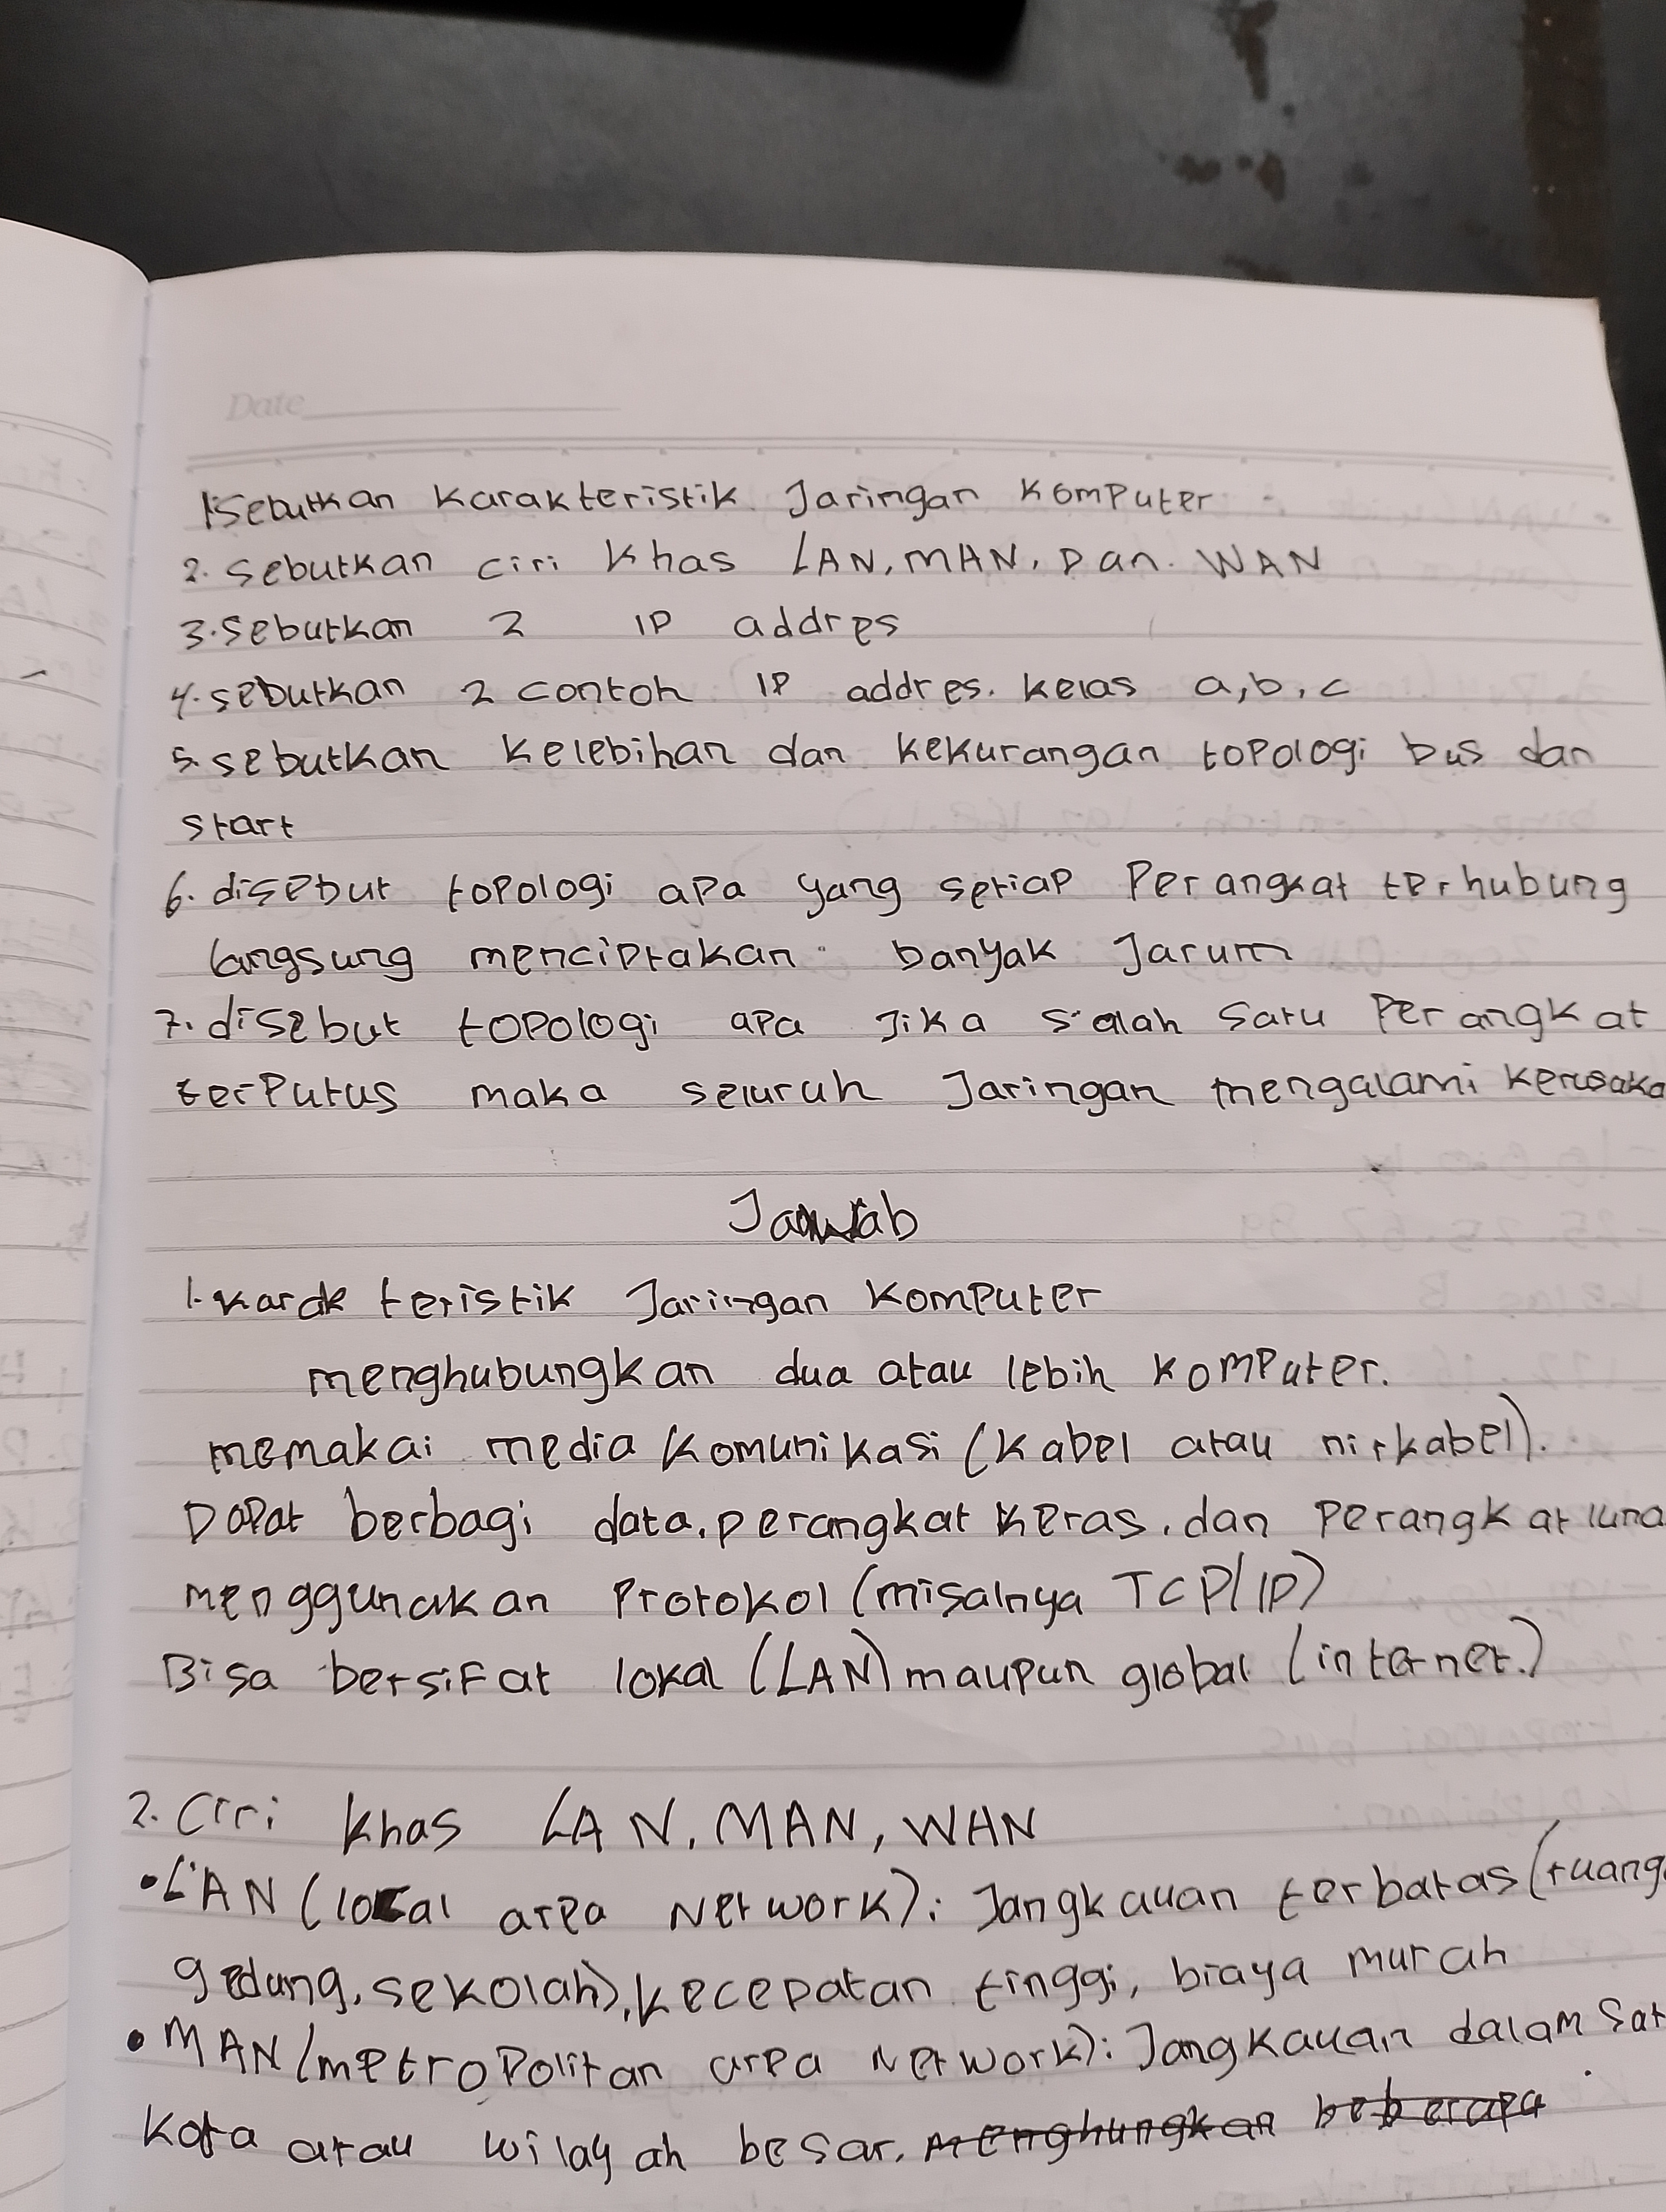 Date
1.Sebutkan karakteristik Jaringan Komputer
2. Sebutkan ciri khas LAN, MAN, Dan. WAN
3. Sebutkan 2 IP addres
4. sebutkan 2 contoh IP addres. kelas a, b, c
5. sebutkan kelebihan dan kekurangan topologi bus dan
start
6. disebut topologi apa yang setiap Perangkat terhubung
langsung menciptakan banyak Jarum
7. disebut topologi apa Jika salah satu Perangkat
terputus maka seluruh Jaringan mengalami kerusaka
Jawab
1. karakteristik Jaringan Komputer
menghubungkan dua atau lebih Komputer.
memakai media Komunikasi (Kabel atau nirkabel).
Dapat berbagi data, perangkat Keras, dan Perangkat luna
menggunakan Protokol (misalnya TCP/IP)
Bisa bersifat lokal (LAN) maupun global (internet.)
2. Ciri khas LAN, MAN, WAN
• LAN (local area Network): Jangkauan terbatas (ruang
gedung, sekolah), kecepatan tinggi, biaya murah
• MAN (metropolitan area Network): Jangkauan dalam Sat
Kota atau wilayah besar. menghungkan beberapa